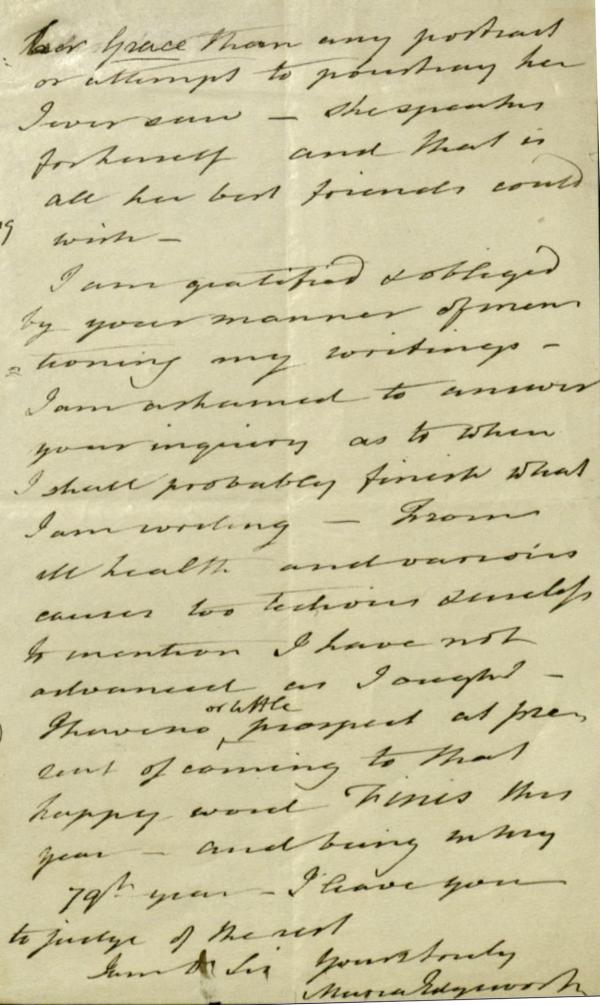 her Grace than any portrait
or attempt to pourtray her
I ever saw — She speaks
for herself and that is
all her best friends could
wish —
I am gratified & obliged
by your manner of men
tioning my writings —
I am ashamed to answer
your inquiry as to when
I shall probably finish what
I am writing — From
ill health and various
causes too tedious & useless
to mention I have not
advanced as I ought —
I have no or little prospect at pre
sent of coming to that
happy word Finis this
year — and being in my
79th year — I leave you
to judge of the rest
I am Dr Sir Yours truly
Maria Edgeworth